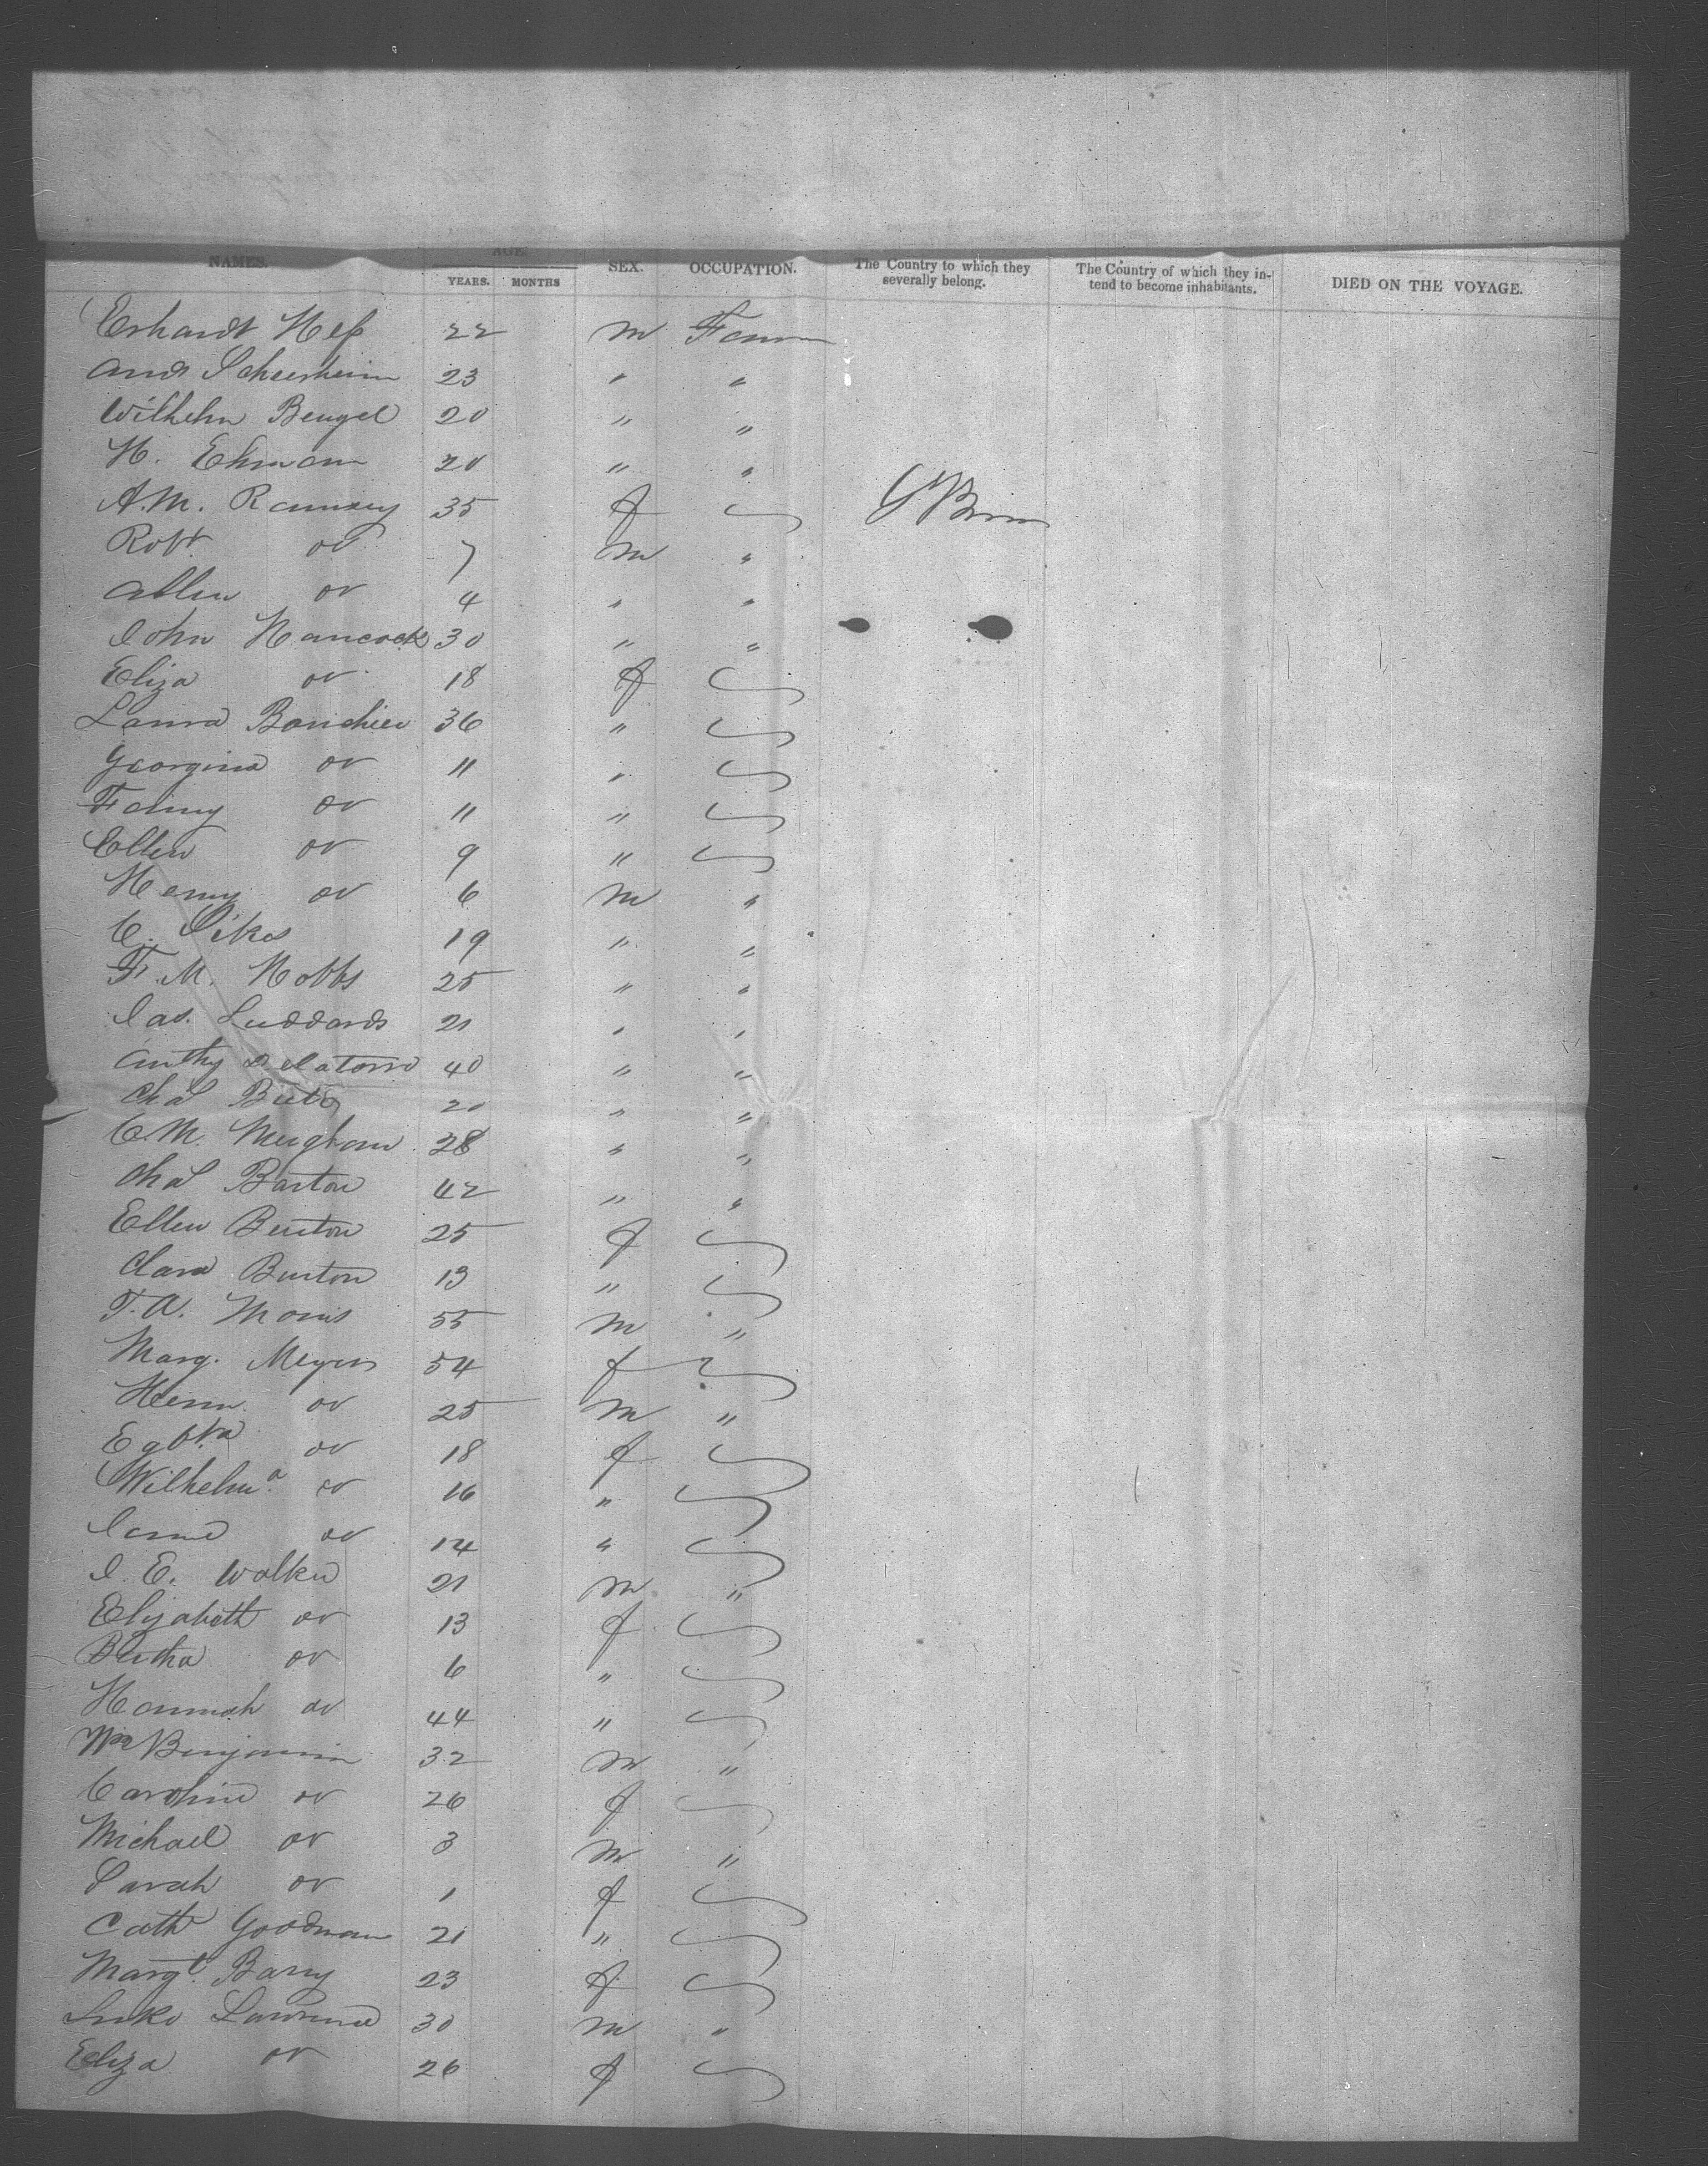 NAMES. AGE. YEARS. MONTHS SEX. OCCUPATION. The Country to which they severally belong. The Country of which they intend to become inhabitants. DIED ON THE VOYAGE.
Erhardt Heß 22 m Farm
And Scheersheim 23 " "
Wilhelm Beugel 20 " "
H. Ehmann 20 " "
A.M. Ramsey 35 f G Brn
Robt do 7 m "
Allen do 4 " "
John Hancock 30 " "
Eliza do 18 f
Laura Bouchier 36 "
Georgina do 11 "
Fanny do 11 "
Ellen do 9 "
Henry do 6 m "
C. Sikes 19 " "
F.M. Hobbs 25 " "
Jas. Luddards 21 " "
Anthy Delatorre 40 " "
Chas 20 " "
C.M. Meighan 28 " "
Chas Barton 42 " "
Ellen Burton 25 f
Clara Burton 13 "
T.A. Morris 55 m "
Marg. Meyers 54 f
Herm. do 25 m "
do 18 f
Wilhelma do 16 "
do 14 "
J.E. Walker 21 m "
Elizabeth do 13 f
Bertha do 6 "
Hannah do 44 "
Wm Benjamin 32 m "
Caroline do 26 f
Michael do 3 m "
Sarah do 1 f
Cath Goodman 21 "
Margt. Barry 23 f
Luke Lawrence 30 m "
Eliza do 26 f